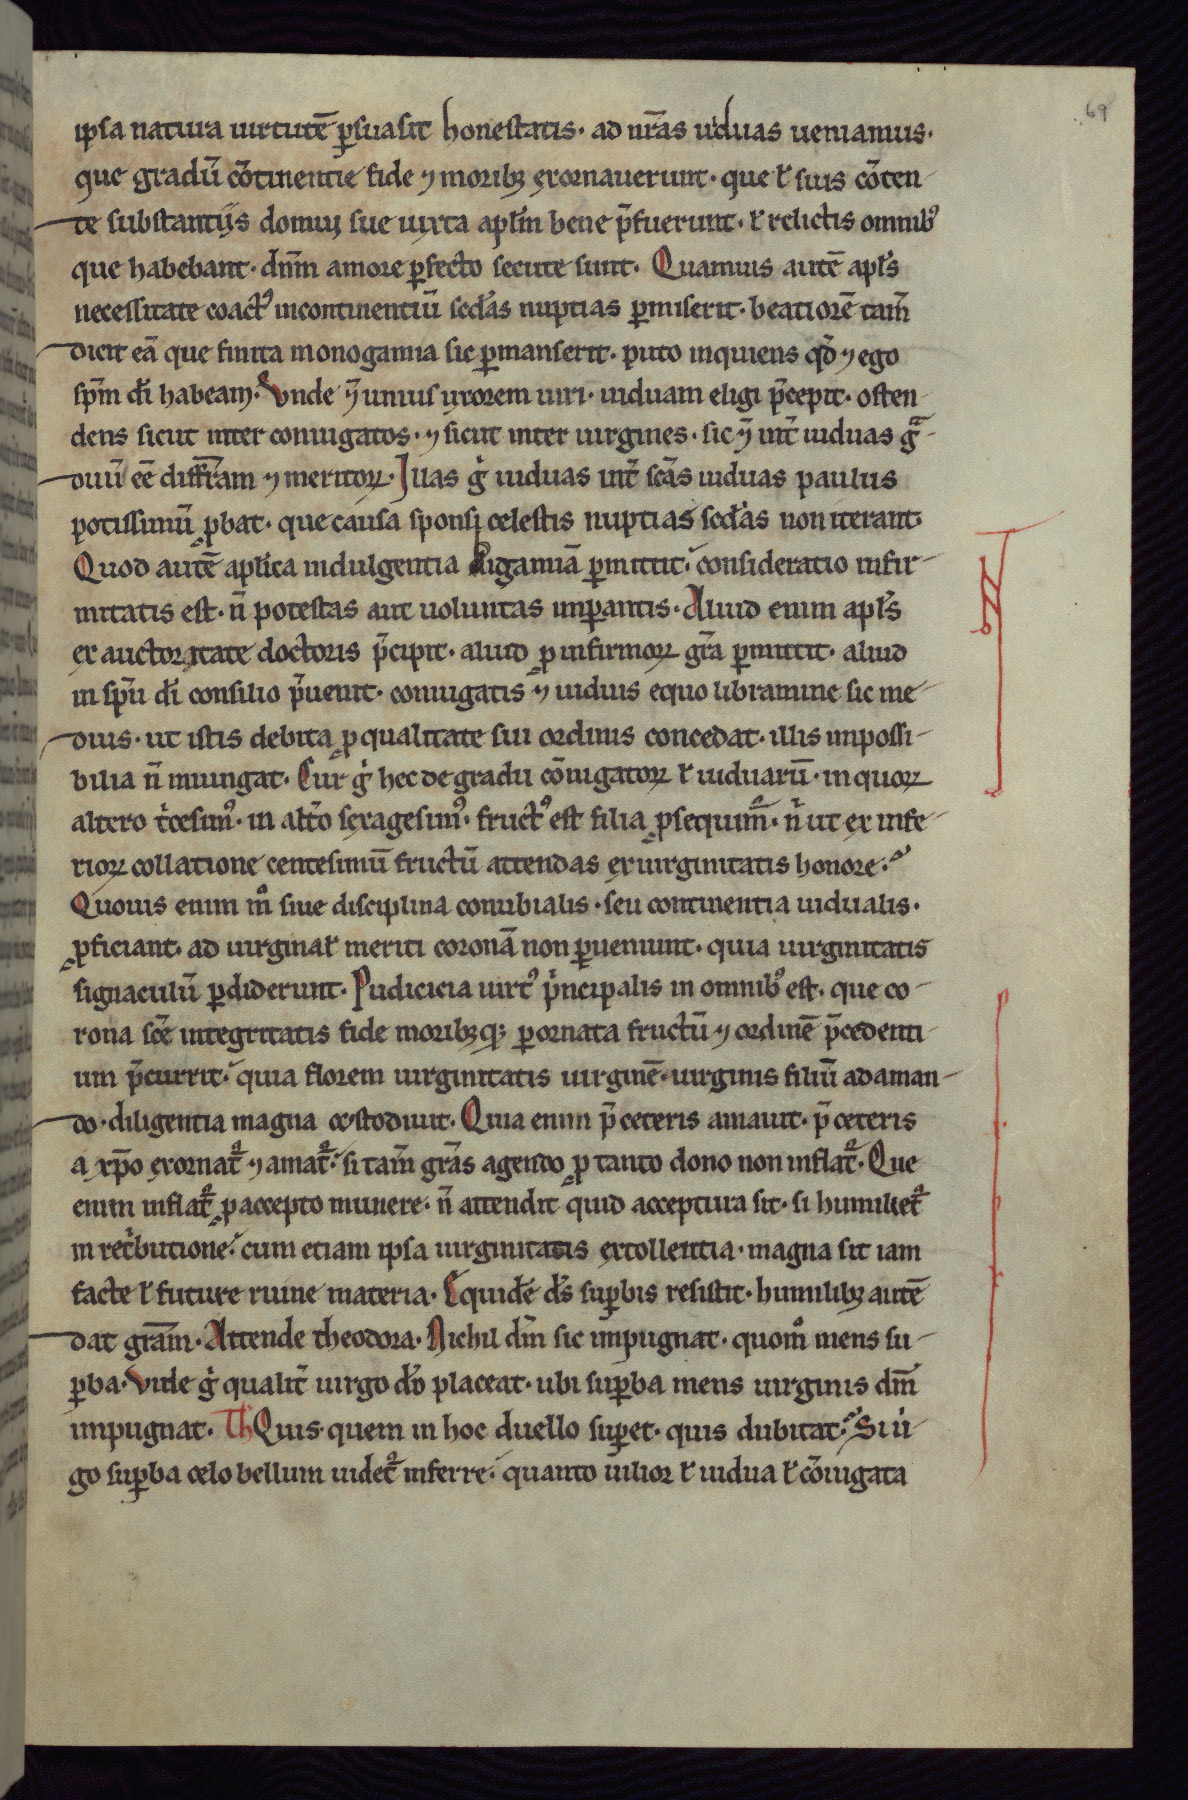 69
ipsa natura uirtutē ꝑsuasit honestatis · ad nr̄as uiduas ueniamus ·
que gradū cōtinentie fide ⁊ moribꝫ exornauerunt · que ł suis cōten
te substantiis domui sue iuxta apl̄m bene p̄fuerunt · ł relictis omnibꝰ
que habebant · dn̄m amore ꝑfecto secute sunt · Quamuis autē apl̄s
necessitate coactꝰ incontinentiū sc̄das nuptias ꝑmiserit · beatiorē tam̄
dicit eā que finita monogamia sic ꝑmanserit · puto inquiens qd̄ ⁊ ego
sp̄m dī habeam · Vnde ⁊ unius uxorem uiri · uiduam eligi p̄cepit · osten
dens sicut inter coniugatos · ⁊ sicut inter uirgines · sic ⁊ int̄ uiduas gᵃ
duū eē diffr̄am ⁊ meritoꝝ · Illas g̊ uiduas int̄ sc̄as uiduas paulus
potissimū ꝓbat · que causa sponsi celestis nuptias sc̄das non iterant ·
Quod autē apl̄ica indulgentia bigamiā ꝑmittit · consideratio infir
mitatis est · n̄ potestas aut uoluntas imꝑantis · Aliud enim apl̄s
ex auctoritate doctoris p̄cipit · aliud ꝓ infirmoꝝ gr̄a ꝑmittit · aliud
in sp̄u dī consilio p̄uenit · coniugatis ⁊ uiduis equo libramine sic me
dius · ut istis debita ꝓ qualitate sui ordinis concedat · illis impossi
bilia n̄ iniungat · Cur g̊ hec de gradu cōiugatoꝝ ł uiduarū · in quoꝝ
altero tͥcesimꝰ · in alt̄o sexagesimꝰ · fructꝰ est filia ꝓsequim̄ · nͥ ut ex infe
rioꝝ collatione centesimū fructū attendas ex uirginitatis honore ·
Quouis enim mͦ siue disciplina conubialis · seu continentia uidualis ·
ꝓficiant · ad uirginał meriti coronā non ꝑueniunt · quia uirginitatis
signaculū ꝑdiderunt · Pudicicia uirtꝰ pͥncipalis in omnibꝰ est · que co
rona sc̄e integritatis fide moribꝫqꝫ ꝑornata fructū ⁊ ordinē p̄cedenti
um p̄currit · quia florem uirginitatis uirginē · uirginis filiū adaman
do · diligentia magna custodiuit · Quia enim p̄ ceteris amauit · p̄ ceteris
a xp̄o exornat᷑ ⁊ amat᷑ · si tam̄ gr̄as agendo ꝓ tanto dono non inflat᷑ · Que
enim inflat᷑ ꝓ accepto munere · n̄ attendit quid acceptura sit · si humiliet᷑
in retͥbutione · cum etiam ipsa uirginitatis extollentia · magna sit iam
facte ł future ruine materia · Equidē ds̄ suꝑbis resistit · humilibꝫ autē
dat gr̄am · Attende theodora · Nichil dm̄ sic impugnat · quomͦ mens su
ꝑba · Vide g̊ qualit̄ uirgo dō placeat · ubi suꝑba mens uirginis dm̄
impugnat · Th̄ Quis · quem in hoc duello suꝑet · quis dubitat · Si uͥ
go suꝑba celo bellum uidet᷑ inferre · quanto uilior ł uidua ł cōiugata